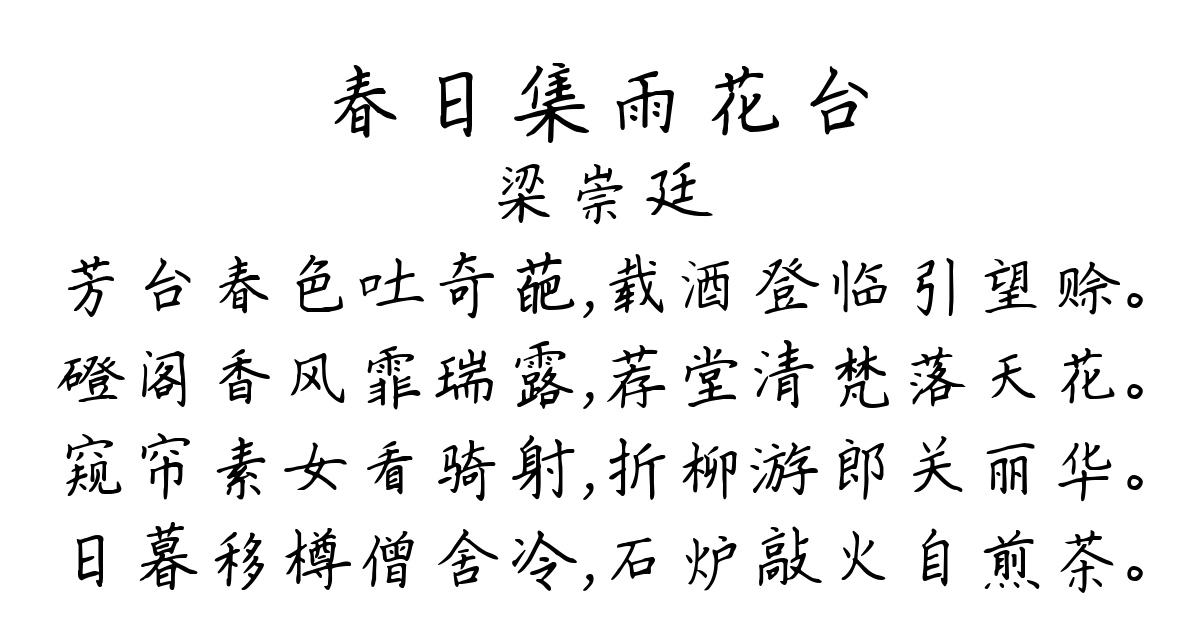 春日集雨花台
梁崇廷
芳台春色吐奇葩,载酒登临引望赊。
磴阁香风霏瑞露,荐堂清梵落天花。
窥帘素女看骑射,折柳游郎关丽华。
日暮移樽僧舍冷,石炉敲火自煎茶。